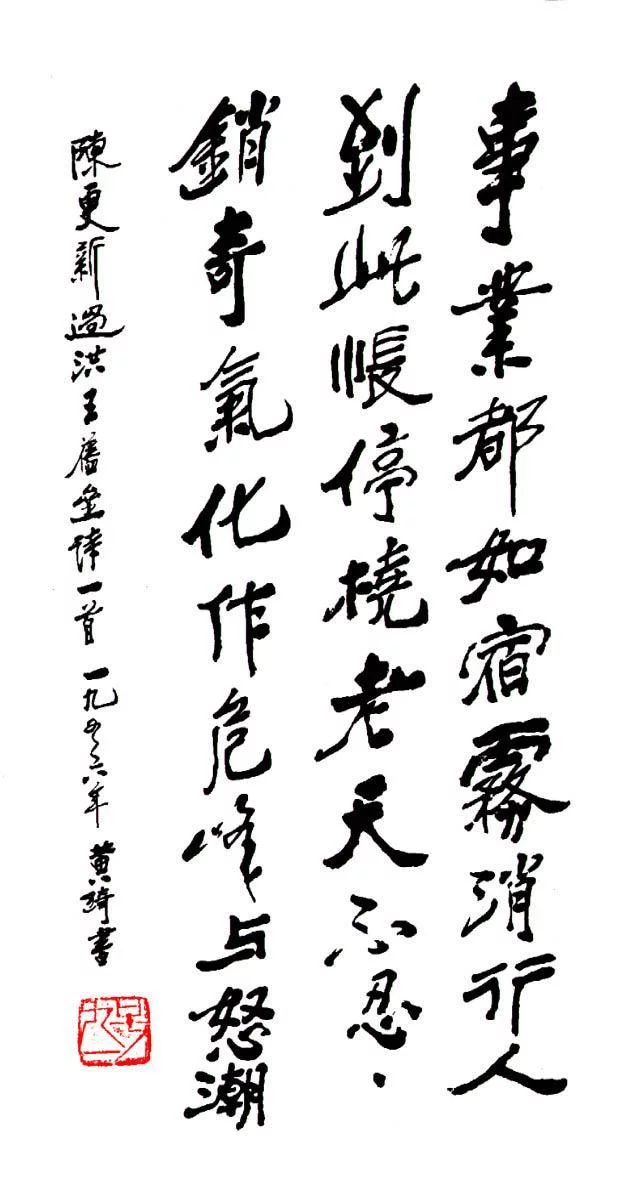 事業都如宿霧消行人
到此悵停橈老天不忍
銷奇氣化作危峰与怒潮
陳更新過洪王舊壘詩一首 一九五六年 黄綺書